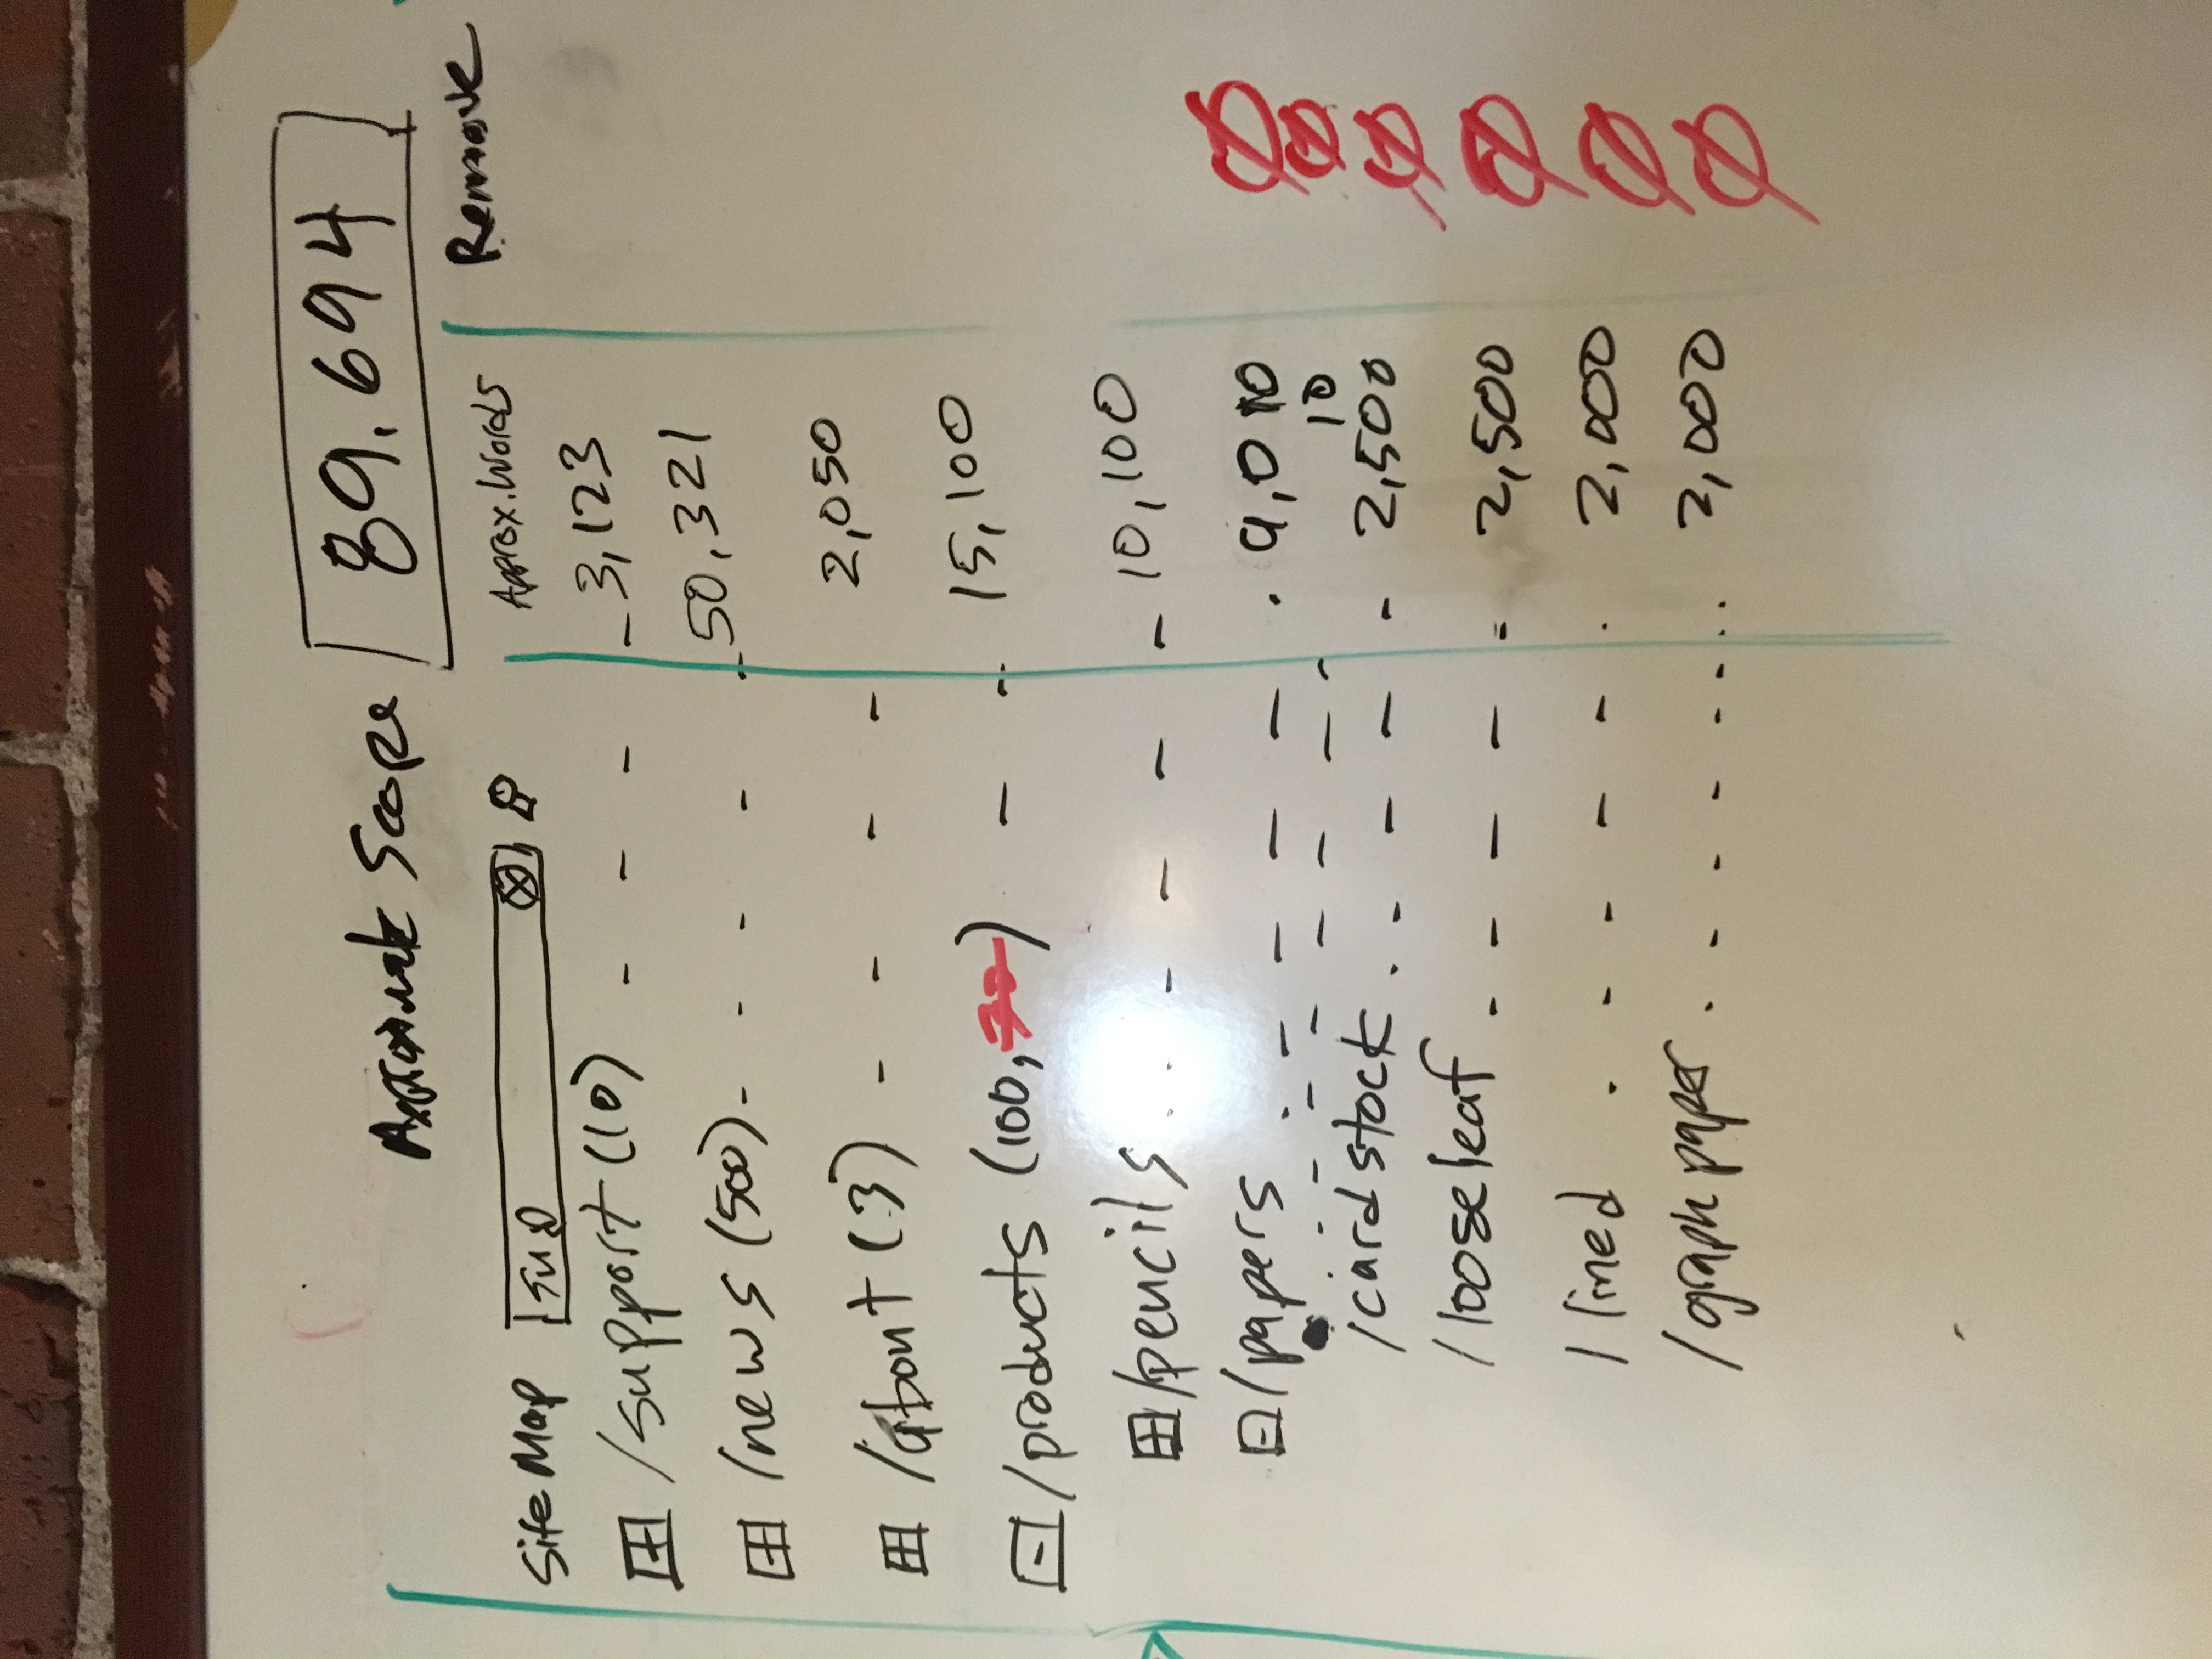 Approximate Scope 89,694
Site Map Approx. Words Remove
/support (10) - - - - 3,123
/news (500) - - - - - 50,321
/about (3) - - - - 2,050
/products (100, ) - - 15,100
/pencils . . . - - - - 10,100
/papers - - - - - . 9,010
- - - - - - - 10
/cardstock . . . - - - 2,500
/looseleaf - - - - - 2,500
/lined . - - - - . 2,000
/graph paper . - - - - - . . 2,000